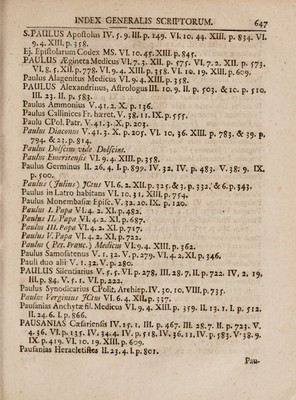 INDEX GENERALIS SCRIPTORUM. 647
S. PAULUS Apostolus IV. 5. 9. III. p. 149. VI. 10. 44. XIII. p. 834. VI.
9. 4. XIII. p. 358.
Ej. Epistolarum Codex MS. VI. 10. 45. XIII. p. 845.
PAULUS Ægineta Medicus VI. 7. 3. XII. p. 575. VI. 7. 2. XII. p. 573.
VI. 8. 5. XII. p. 778. VI. 9. 4. XIII. p. 358. VI. 10. 19. XIII. p. 609.
Paulus Alagenitus Medicus VI. 9. 4. XIII. p. 358.
PAULUS Alexandrinus, Astrologus III. 10. 9. II. p. 503. & 10. p. 510.
III. 23. II. p. 583.
Paulus Ammonius V. 41. 2. X. p. 136.
Paulus Callinices Fr. hæret. V. 38. 11. IX. p. 555.
Paulus CPol. Patr. V. 41. 3. X. p. 203.
Paulus Diaconus V. 41. 3. X. p. 205. VI. 10. 36. XIII. p. 783. & 39. p.
794. & 23. p. 814.
Paulus Dolscius vide Dolscius.
Paulus Emeritensis VI. 9. 4. XIII. p. 358.
Paulus Germinus II. 26. 4. I. p. 899. IV. 32. IV. p. 483. V. 38. 9. IX.
p. 500.
Paulus (Julius) JCtus VI. 6. 2. XII. p. 325. & 3. p. 332. & 6. p. 343.
Paulus in Latro habitans VI. 10. 31. XIII. p. 754.
Paulus Monembasiæ Episc. V. 32. 20. IX. p. 120.
Paulus I. Papa VI. 4. 2. XI. p. 482.
Paulus II. Papa VI. 4. 2. XI. p. 687.
Paulus III. Papa VI. 4. 2. XI. p. 717.
Paulus V. Papa VI. 4. 2. XI. p. 722.
Paulus (Pet. Franc.) Medicus VI. 9. 4. XIII. p. 362.
Paulus Samosatenus V. 1. 32. V. p. 279. VI. 4. 2. XI. p. 346.
Pauli duo alii V. 1. 32. V. p. 280.
PAULUS Silentiarius V. 5. 5. VI. p. 278. III. 28. 7. II. p. 722. IV. 2. 19.
III. p. 84. V. 5. 1. VI. p. 222.
Paulus Synodicarius CPolit. Archiep. IV. 30. 10. VIII. p. 735.
Paulus Verginius JCtus VI. 6. 4. XII. p. 337.
Pausanias Anchytæ fil. Medicus VI. 9. 4. XIII. p. 359. II. 13. 1. I. p. 512.
II. 24. 6. I. p. 866.
PAUSANIAS Cæsariensis IV. 15. 1. III. p. 467. III. 28. 7. II. p. 723. V.
4. 36. VI. p. 135. IV. 34. 4. IV. p. 518. IV. 36. 11. IV. p. 583. V. 38. 9.
IX. p. 419. VI. 10. 19. XIII. p. 609.
Pausanias Heracletistes II. 23. 4. I. p. 801.
Pau-